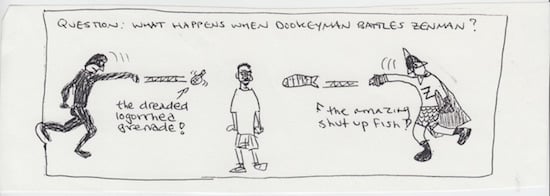 QUESTION: WHAT HAPPENS WHEN DOOKEYMAN BATTLES ZENMAN?
the dreaded
logorrhea
grenade!
the amazing
shut up fish!
Z